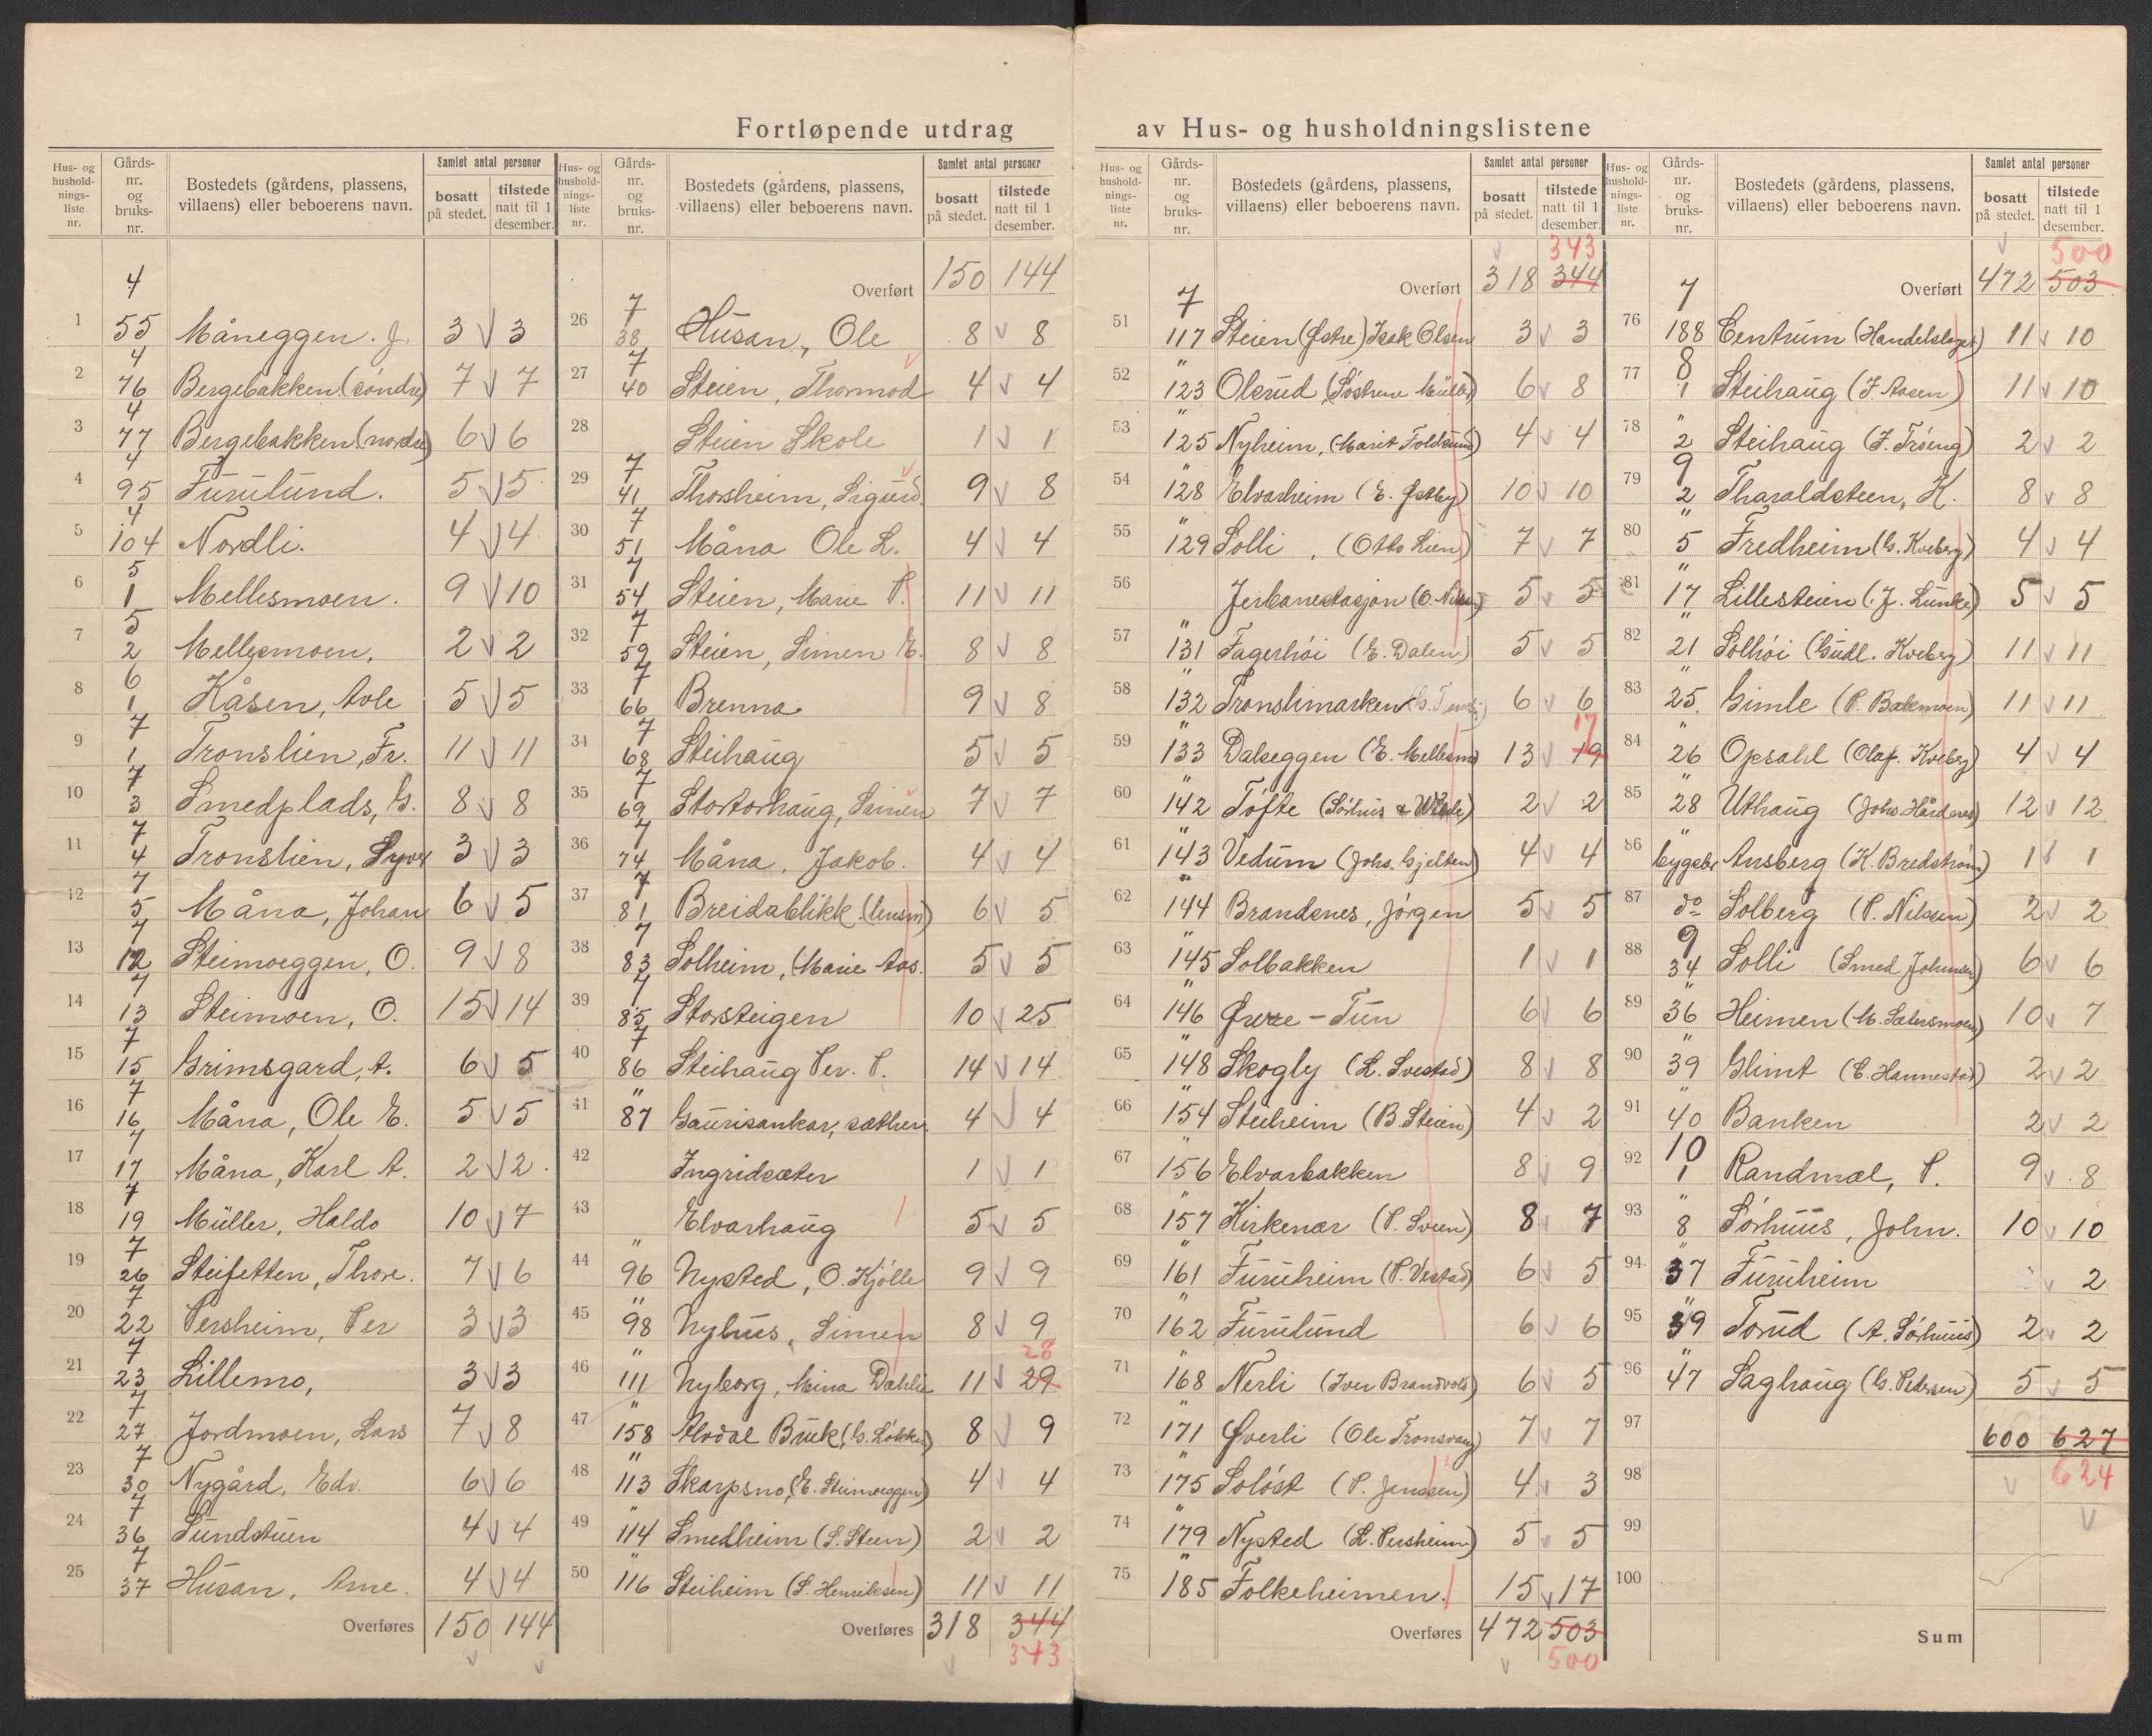 Fortløpende utdrag av Hus- og husholdningslistene
Hus- og hushold-nings-liste nr. | Gårds-nr. og bruks-nr. | Bostedets (gårdens, plassens, villaens) eller beboerens navn. | Samlet antal personer | bosatt på stedet. | tilstede natt til 1 desember.
1 4 55 Måneggen. J. 3 v 3
2 4 76 Bergebakken (søndre) 7 v 7
3 4 77 Bergebakken (nordre) 6 v 6
4 4 95 Furulund. 5 v 5
5 4 104 Nordli. 4 v 4
6 5 1 Mellesmoen. 9 v 10
7 5 2 Mellesmoen. 2 v 2
8 6 1 Kåsen, Avle 5 v 5
9 7 1 Tronslien, Fr. 11 v 11
10 7 3 Smedplads, G. 8 v 8
11 7 4 Tronslien, Syver 3 v 3
12 7 5 Måna, Johan 6 v 5
13 7 12 Steimoeggen, O. 9 v 8
14 7 13 Steimoen, O. 15 v 14
15 7 15 Grimsgard, A. 6 v 5
16 7 16 Måna, Ole E. 5 v 5
17 7 17 Måna, Karl A. 2 v 2
18 7 19 Müller, Haldo 10 v 7
19 7 26 Steifetten, Thore. 7 v 6
20 7 22 Persheim, Per 3 v 3
21 7 23 Lillemo, 3 v 3
22 7 27 Jordmoen, Lars 7 v 8
23 7 30 Nygård, Edv. 6 v 6
24 7 36 Sundstuen 4 v 4
25 7 37 Husan, Arne. 4 v 4
Overføres 150 144
Hus- og hushold-nings-liste nr. | Gårds-nr. og bruks-nr. | Bostedets (gårdens, plassens, villaens) eller beboerens navn. | Samlet antal personer | bosatt på stedet. | tilstede natt til 1 desember.
Overført 150 144
26 7 38 Husan, Ole 8 v 8
27 7 40 Steien, Thormod 4 v 4
28 Steien Skole 1 v 1
29 7 41 Thorsheim, Sigurd 9 v 8
30 7 51 Måna Ole L. 4 v 4
31 7 54 Steien, Marie P. 11 v 11
32 7 59 Steien, Simen E. 8 v 8
33 7 66 Brenna 9 v 8
34 7 68 Steihaug 5 v 5
35 7 69 Stortorhaug, Simen 7 v 7
36 7 74 Måna, Jakob. 4 v 4
37 7 81 Breidablikk (lensm) 6 v 5
38 7 83 Solheim, (Marie Aas. 5 v 5
39 7 85 Storsteigen 10 v 25
40 7 86 Steihaug Per. P. 14 v 14
41 " 87 Gaurisankar, sæther. 4 v 4
42 Ingridsæter 1 v 1
43 Elvarhaug 5 v 5
44 " 96 Nysted, O. Kjølle 9 v 9
45 " 98 Nyhus, Simen 8 v 9
46 " 111 Nyborg, Mina Dahlie 11 v 29 28
47 " 158 Alvdal Bruk (G. Løkken) 8 v 9
48 " 113 Skarpsno, (E. Steimoeggen) 4 v 4
49 " 114 Smedheim (S. Steen) 2 v 2
50 " 116 Steiheim (S. Henriksen) 11 v 11
Overføres 318 344 343
Hus- og hushold-nings-liste nr. | Gårds-nr. og bruks-nr. | Bostedets (gårdens, plassens, villaens) eller beboerens navn. | Samlet antal personer | bosatt på stedet. | tilstede natt til 1 desember.
Overført 318 344 343
51 7 117 Steien (Østre) Isak Olsen 3 v 3
52 " 123 Olsrud (Søstrene Müller) 6 v 8
53 " 125 Nyheim, (Marit Foldsund) 4 v 4
54 " 128 Elvarheim (E. Østby) 10 v 10
55 " 129 Solli, (Otto Lien) 7 v 7
56 Jerbanestasjon (O. Nilsen) 5 v 5
57 " 131 Fagerhøi (E. Dalen) 5 v 5
58 " 132 Tronslimarken 6 v 6
59 " 133 Dalseggen (E. Mellesmo 13 v 19 17
60 " 142 Tofte (Sørhus & 2 v 2
61 " 143 Vedum (Johs. Gjelten) 4 v 4
62 " 144 Brandsnes, Jørgen 5 v 5
63 " 145 Solbakken 1 v 1
64 " 146 Øvre-Tun 6 v 6
65 " 148 Skogly (L. Svestad) 8 v 8
66 " 154 Steiheim (B. Steien) 4 v 2
67 " 156 Elvarbakken 8 v 9
68 " 157 Kirkenær (P. Sveen) 8 v 7
69 " 161 Furuheim (P. Vestad) 6 v 5
70 " 162 Furulund 6 v 6
71 " 168 Nerli (Iver Brandvold) 6 v 5
72 " 171 Øverli (Ole Tronsvang) 7 v 7
73 " 175 Soløst (P. Jenssen) 4 v 3
74 " 179 Nysted (L. Persheim) 5 v 5
75 " 185 Folkeheimen. 15 v 17
Overføres 472 503 500
Hus- og hushold-nings-liste nr. | Gårds-nr. og bruks-nr. | Bostedets (gårdens, plassens, villaens) eller beboerens navn. | Samlet antal personer | bosatt på stedet. | tilstede natt til 1 desember.
Overført 472 503 500
76 7 188 Centrum (Handelslaget) 11 v 10
77 8 1 Steihaug (J. Aasen) 11 v 10
78 " 2 Steihaug (J. Trøeng) 2 v 2
79 9 2 Tharaldsteen, K. 8 v 8
80 " 5 Fredheim (G. Kveberg) 4 v 4
81 " 17 Lillesteien (J. Lunke) 5 v 5
82 " 21 Solhøi (Gudl. Kveberg) 11 v 11
83 " 25 Gimle (P. Bakmoen) 11 v 11
84 " 26 Opsahl (Olaf. Kveberg) 4 v 4
85 " 28 Uthaug (Johs. Hårdnes) 12 v 12
86 " bygselbr Ansberg (K. Bredstrøm) 1 v 1
87 do Solberg (P. Nilsen) 2 v 2
88 9 34 Solli (Smed Johnsen) 6 v 6
89 " 36 Heimen (M. Sætersmoen) 10 v 7
90 " 39 Glimt (E. Hannestad) 2 v 2
91 " 40 Banken 2 v 2
92 10 1 Randmæl, P. 9 v 8
93 " 8 Sørhuus, John. 10 v 10
94 " 37 Furuheim v 2
95 " 39 Torud (A. Sørhuus) 2 v 2
96 " 47 Saghaug (G. Pedersen) 5 v 5
97 600 627
98 624
99
100
Sum